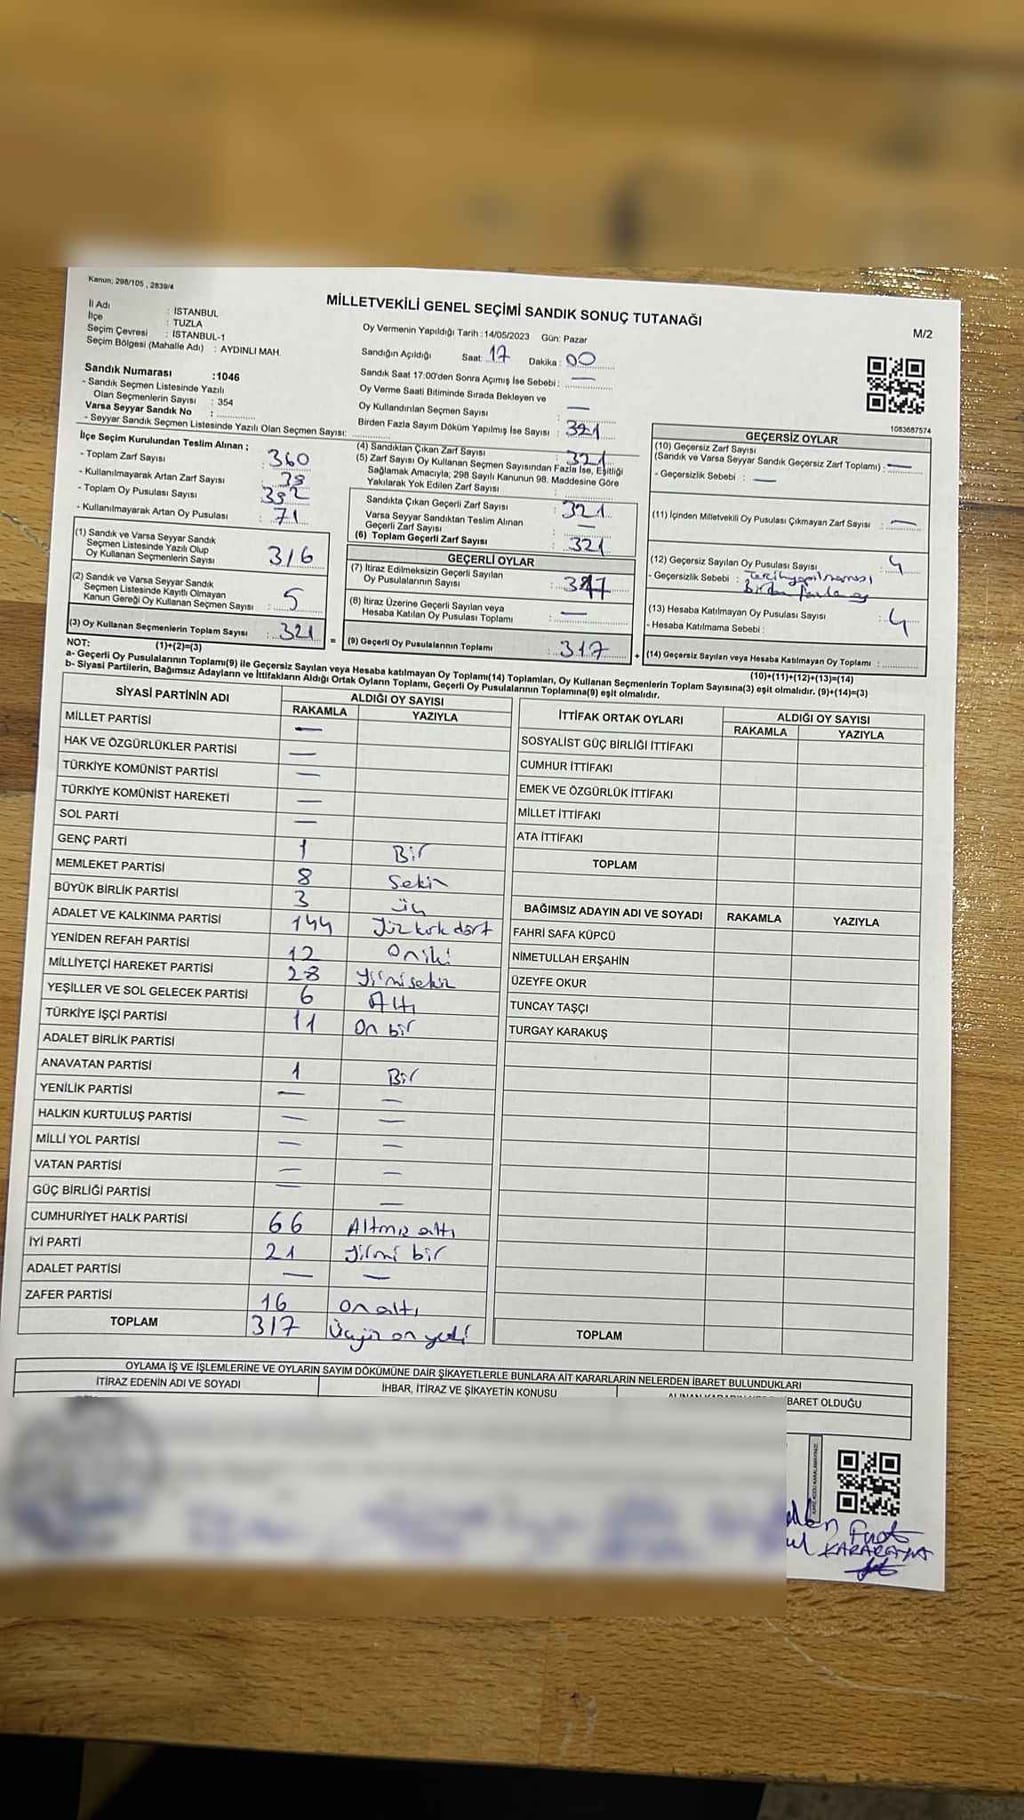 Kanun; 298/105 , 2839/4
MİLLETVEKİLİ GENEL SEÇİMİ SANDIK SONUÇ TUTANAĞI
M/2
İl Adı : İSTANBUL
İlçe : TUZLA
Seçim Çevresi : İSTANBUL-1
Seçim Bölgesi (Mahalle Adı) : AYDINLI MAH.
Sandık Numarası :1046
- Sandık Seçmen Listesinde Yazılı
Olan Seçmenlerin Sayısı : 354
Varsa Seyyar Sandık No :
- Seyyar Sandık Seçmen Listesinde Yazılı Olan Seçmen Sayısı:
Oy Vermenin Yapıldığı Tarih : 14/05/2023 Gün: Pazar
Sandığın Açıldığı Saat : 17 Dakika : 00
Sandık Saat 17:00'den Sonra Açımış İse Sebebi : —
Oy Verme Saati Bitiminde Sırada Bekleyen ve
Oy Kullandırılan Seçmen Sayısı —
Birden Fazla Sayım Döküm Yapılmış İse Sayısı : 321
1083687574
İlçe Seçim Kurulundan Teslim Alınan ;
- Toplam Zarf Sayısı : 360
- Kullanılmayarak Artan Zarf Sayısı : 39
- Toplam Oy Pusulası Sayısı : 392
- Kullanılmayarak Artan Oy Pusulası : 71
(1) Sandık ve Varsa Seyyar Sandık
Seçmen Listesinde Yazılı Olup
Oy Kullanan Seçmenlerin Sayısı : 316
(2) Sandık ve Varsa Seyyar Sandık
Seçmen Listesinde Kayıtlı Olmayan
Kanun Gereği Oy Kullanan Seçmen Sayısı : 5
(3) Oy Kullanan Seçmenlerin Toplam Sayısı : 321
(1)+(2)=(3)
(4) Sandıktan Çıkan Zarf Sayısı : 321
(5) Zarf Sayısı Oy Kullanan Seçmen Sayısından Fazla İse, Eşitliği
Sağlamak Amacıyla; 298 Sayılı Kanunun 98. Maddesine Göre
Yakılarak Yok Edilen Zarf Sayısı :
Sandıkta Çıkan Geçerli Zarf Sayısı : 321
Varsa Seyyar Sandıktan Teslim Alınan
Geçerli Zarf Sayısı : —
(6) Toplam Geçerli Zarf Sayısı : 321
GEÇERLİ OYLAR
(7) İtiraz Edilmeksizin Geçerli Sayılan
Oy Pusulalarının Sayısı : 317
(8) İtiraz Üzerine Geçerli Sayılan veya
Hesaba Katılan Oy Pusulası Toplamı : —
(9) Geçerli Oy Pusulalarının Toplamı : 317
GEÇERSİZ OYLAR
(10) Geçersiz Zarf Sayısı
(Sandık ve Varsa Seyyar Sandık Geçersiz Zarf Toplamı) : —
- Geçersizlik Sebebi : —
(11) İçinden Milletvekili Oy Pusulası Çıkmayan Zarf Sayısı : —
(12) Geçersiz Sayılan Oy Pusulası Sayısı : 4
- Geçersizlik Sebebi : Tercih yapılmaması
Birden fazla
(13) Hesaba Katılmayan Oy Pusulası Sayısı : 4
- Hesaba Katılmama Sebebi :
(14) Geçersiz Sayılan veya Hesaba Katılmayan Oy Toplamı :
(10)+(11)+(12)+(13)=(14)
NOT:
a- Geçerli Oy Pusulalarının Toplamı(9) ile Geçersiz Sayılan veya Hesaba katılmayan Oy Toplamı(14) Toplamları, Oy Kullanan Seçmenlerin Toplam Sayısına(3) eşit olmalıdır. (9)+(14)=(3)
b- Siyasi Partilerin, Bağımsız Adayların ve İttifakların Aldığı Ortak Oyların Toplamı, Geçerli Oy Pusulalarının Toplamına(9) eşit olmalıdır.
SİYASİ PARTİNİN ADI ALDIĞI OY SAYISI
RAKAMLA YAZIYLA
MİLLET PARTİSİ —
HAK VE ÖZGÜRLÜKLER PARTİSİ —
TÜRKİYE KOMÜNİST PARTİSİ —
TÜRKİYE KOMÜNİST HAREKETİ —
SOL PARTİ —
GENÇ PARTİ 1 Bir
MEMLEKET PARTİSİ 8 Sekiz
BÜYÜK BİRLİK PARTİSİ 3 üç
ADALET VE KALKINMA PARTİSİ 144 Yüz kırk dört
YENİDEN REFAH PARTİSİ 12 On iki
MİLLİYETÇİ HAREKET PARTİSİ 28 Yirmi sekiz
YEŞİLLER VE SOL GELECEK PARTİSİ 6 Altı
TÜRKİYE İŞÇİ PARTİSİ 11 On bir
ADALET BİRLİK PARTİSİ
ANAVATAN PARTİSİ 1 Bir
YENİLİK PARTİSİ — —
HALKIN KURTULUŞ PARTİSİ — —
MİLLİ YOL PARTİSİ — —
VATAN PARTİSİ — —
GÜÇ BİRLİĞİ PARTİSİ — —
CUMHURİYET HALK PARTİSİ 66 Altmış altı
İYİ PARTİ 21 Yirmi bir
ADALET PARTİSİ — —
ZAFER PARTİSİ 16 On altı
TOPLAM 317 Üçyüz on yedi
İTTİFAK ORTAK OYLARI ALDIĞI OY SAYISI
RAKAMLA YAZIYLA
SOSYALİST GÜÇ BİRLİĞİ İTTİFAKI
CUMHUR İTTİFAKI
EMEK VE ÖZGÜRLÜK İTTİFAKI
MİLLET İTTİFAKI
ATA İTTİFAKI
TOPLAM
BAĞIMSIZ ADAYIN ADI VE SOYADI RAKAMLA YAZIYLA
FAHRİ SAFA KÜPCÜ
NİMETULLAH ERŞAHİN
ÜZEYFE OKUR
TUNCAY TAŞÇI
TURGAY KARAKUŞ
TOPLAM
OYLAMA İŞ VE İŞLEMLERİNE VE OYLARIN SAYIM DÖKÜMÜNE DAİR ŞİKAYETLERLE BUNLARA AİT KARARLARIN NELERDEN İBARET BULUNDUKLARI
İTİRAZ EDENİN ADI VE SOYADI İHBAR, İTİRAZ VE ŞİKAYETİN KONUSU
BARET OLDUĞU
Fuat
KARAKAYA